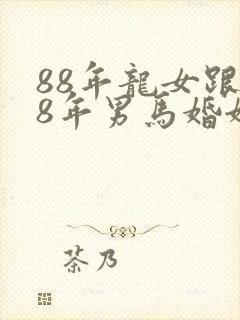 88年龍女跟
8年男馬婚
茶乃